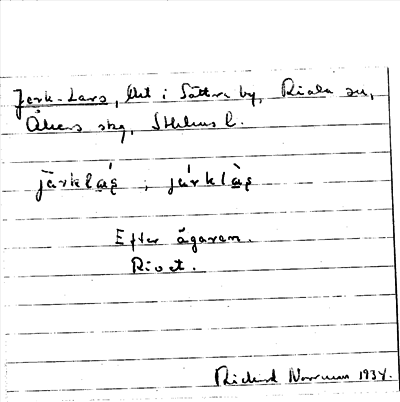 Jerk-Lars, lht i Sättra by, Riala sn,
Åkers skg, Sthlms l.
järklás ; jä̀rklàs
Efter ägaren.
Rivet.
Rickard Norrman 1934.